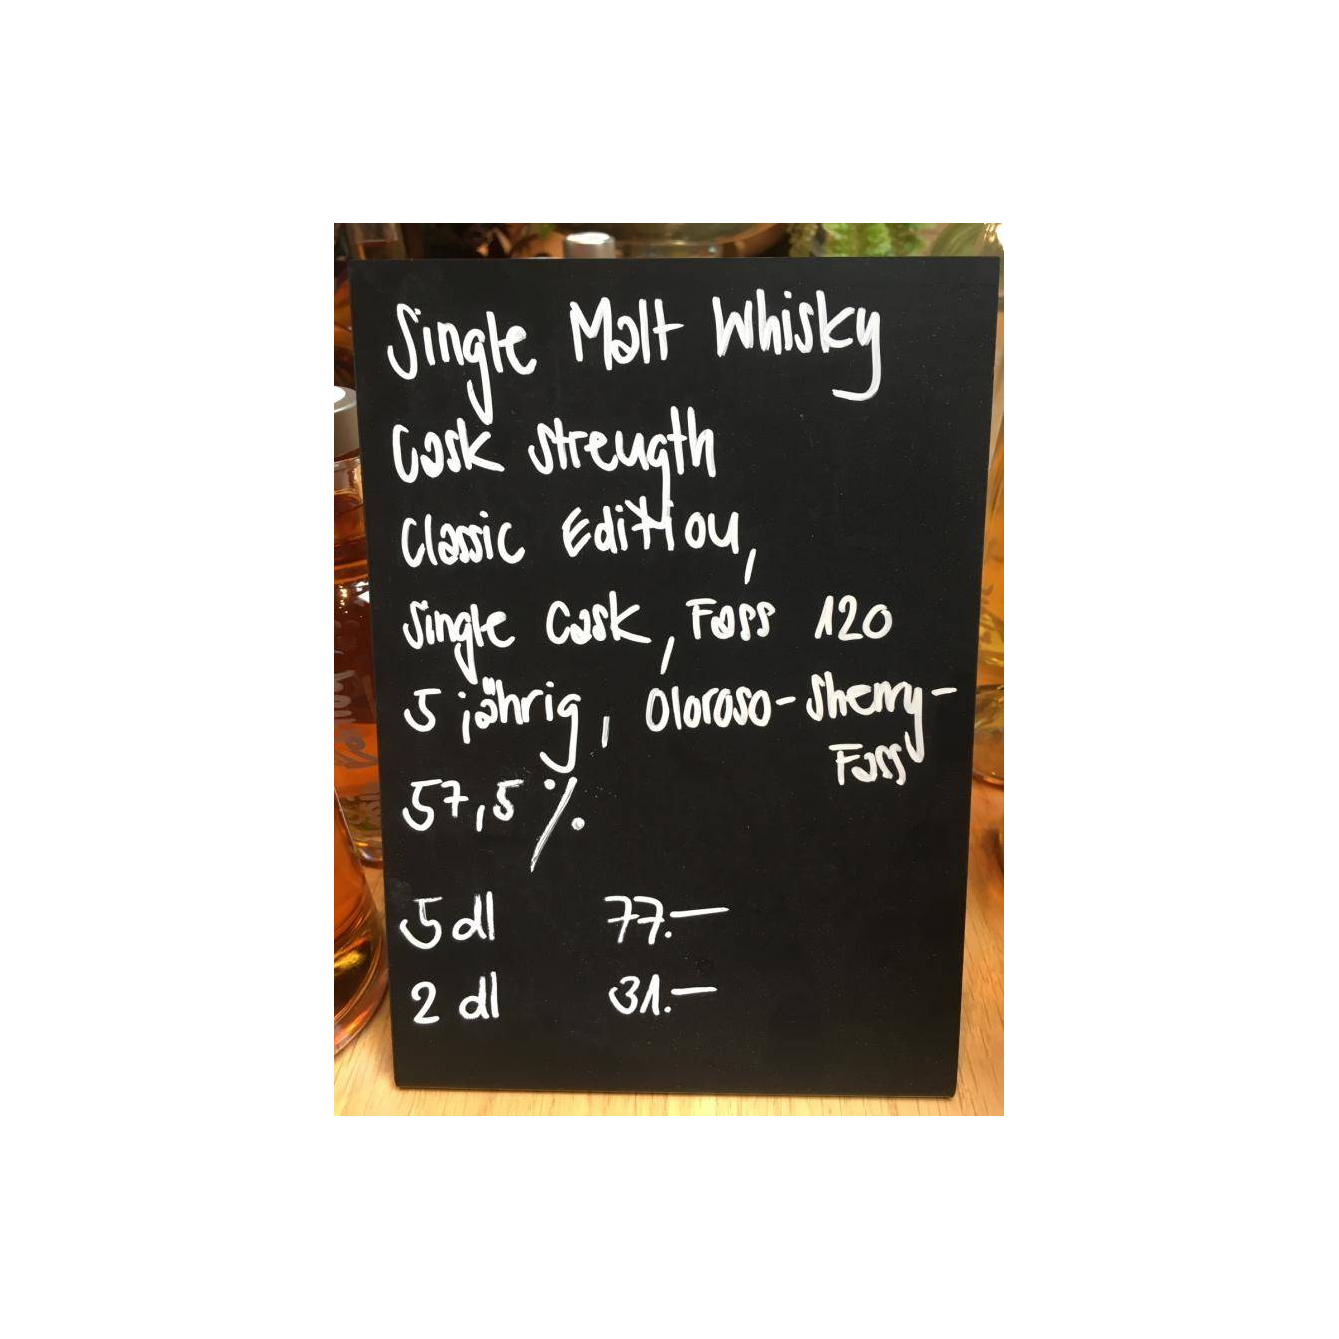 Single Malt Whisky
Cask Strength
Classic Edition,
Single Cask, Fass 120
5 jährig, Oloroso-Sherry-
Fass
57,5 %
5 dl 77.—
2 dl 31.—